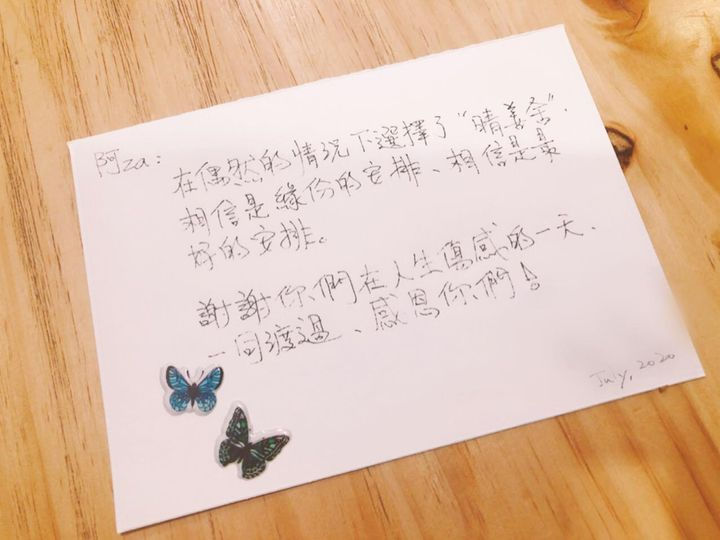 阿za:
在偶然的情況下選擇了“晴善舍”.
相信是緣份的安排、相信是最
好的安排。
謝謝你們在人生傷感的一天、
一同渡過、感恩你們!
July, 2020